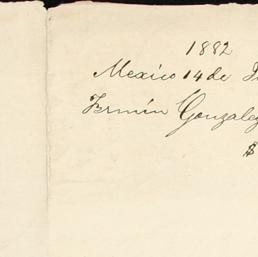 1882
Mexico 14 de
Fermín Gonzalez
$